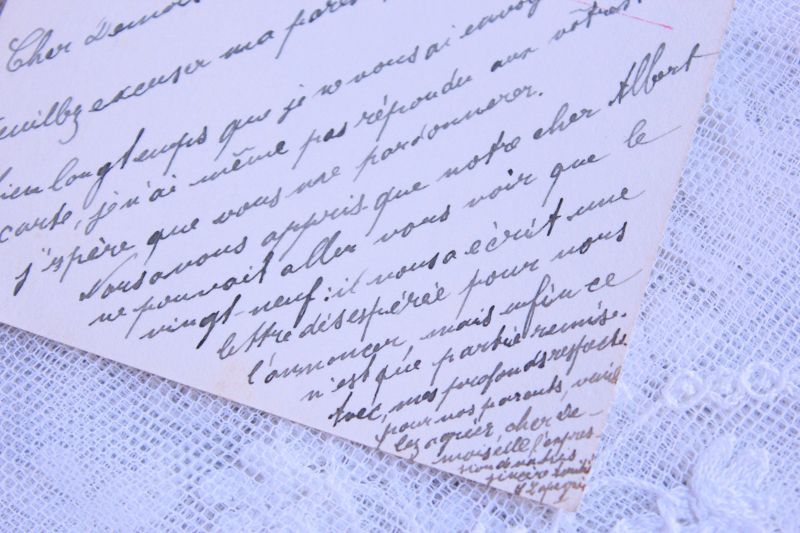 Cher Demois
euillez excuser ma pares
ien longtemps que je ne vous ai envoy
carte, je n'ai même pas répondu aux vôtres.
j'espère que vous me pardonnerez.
Nous avons appris que notre cher Albert
ne pouvait aller vous voir que le
vingt-neuf: il nous a écrit une
lettre désespérée pour nous
l'annoncer, mais enfin ce
n'est que partie remise.
Avec, mes profonds respects
pour vos parents, veuil
lez agréer cher De-
moiselle l'expres-
sion de ma très
sincère